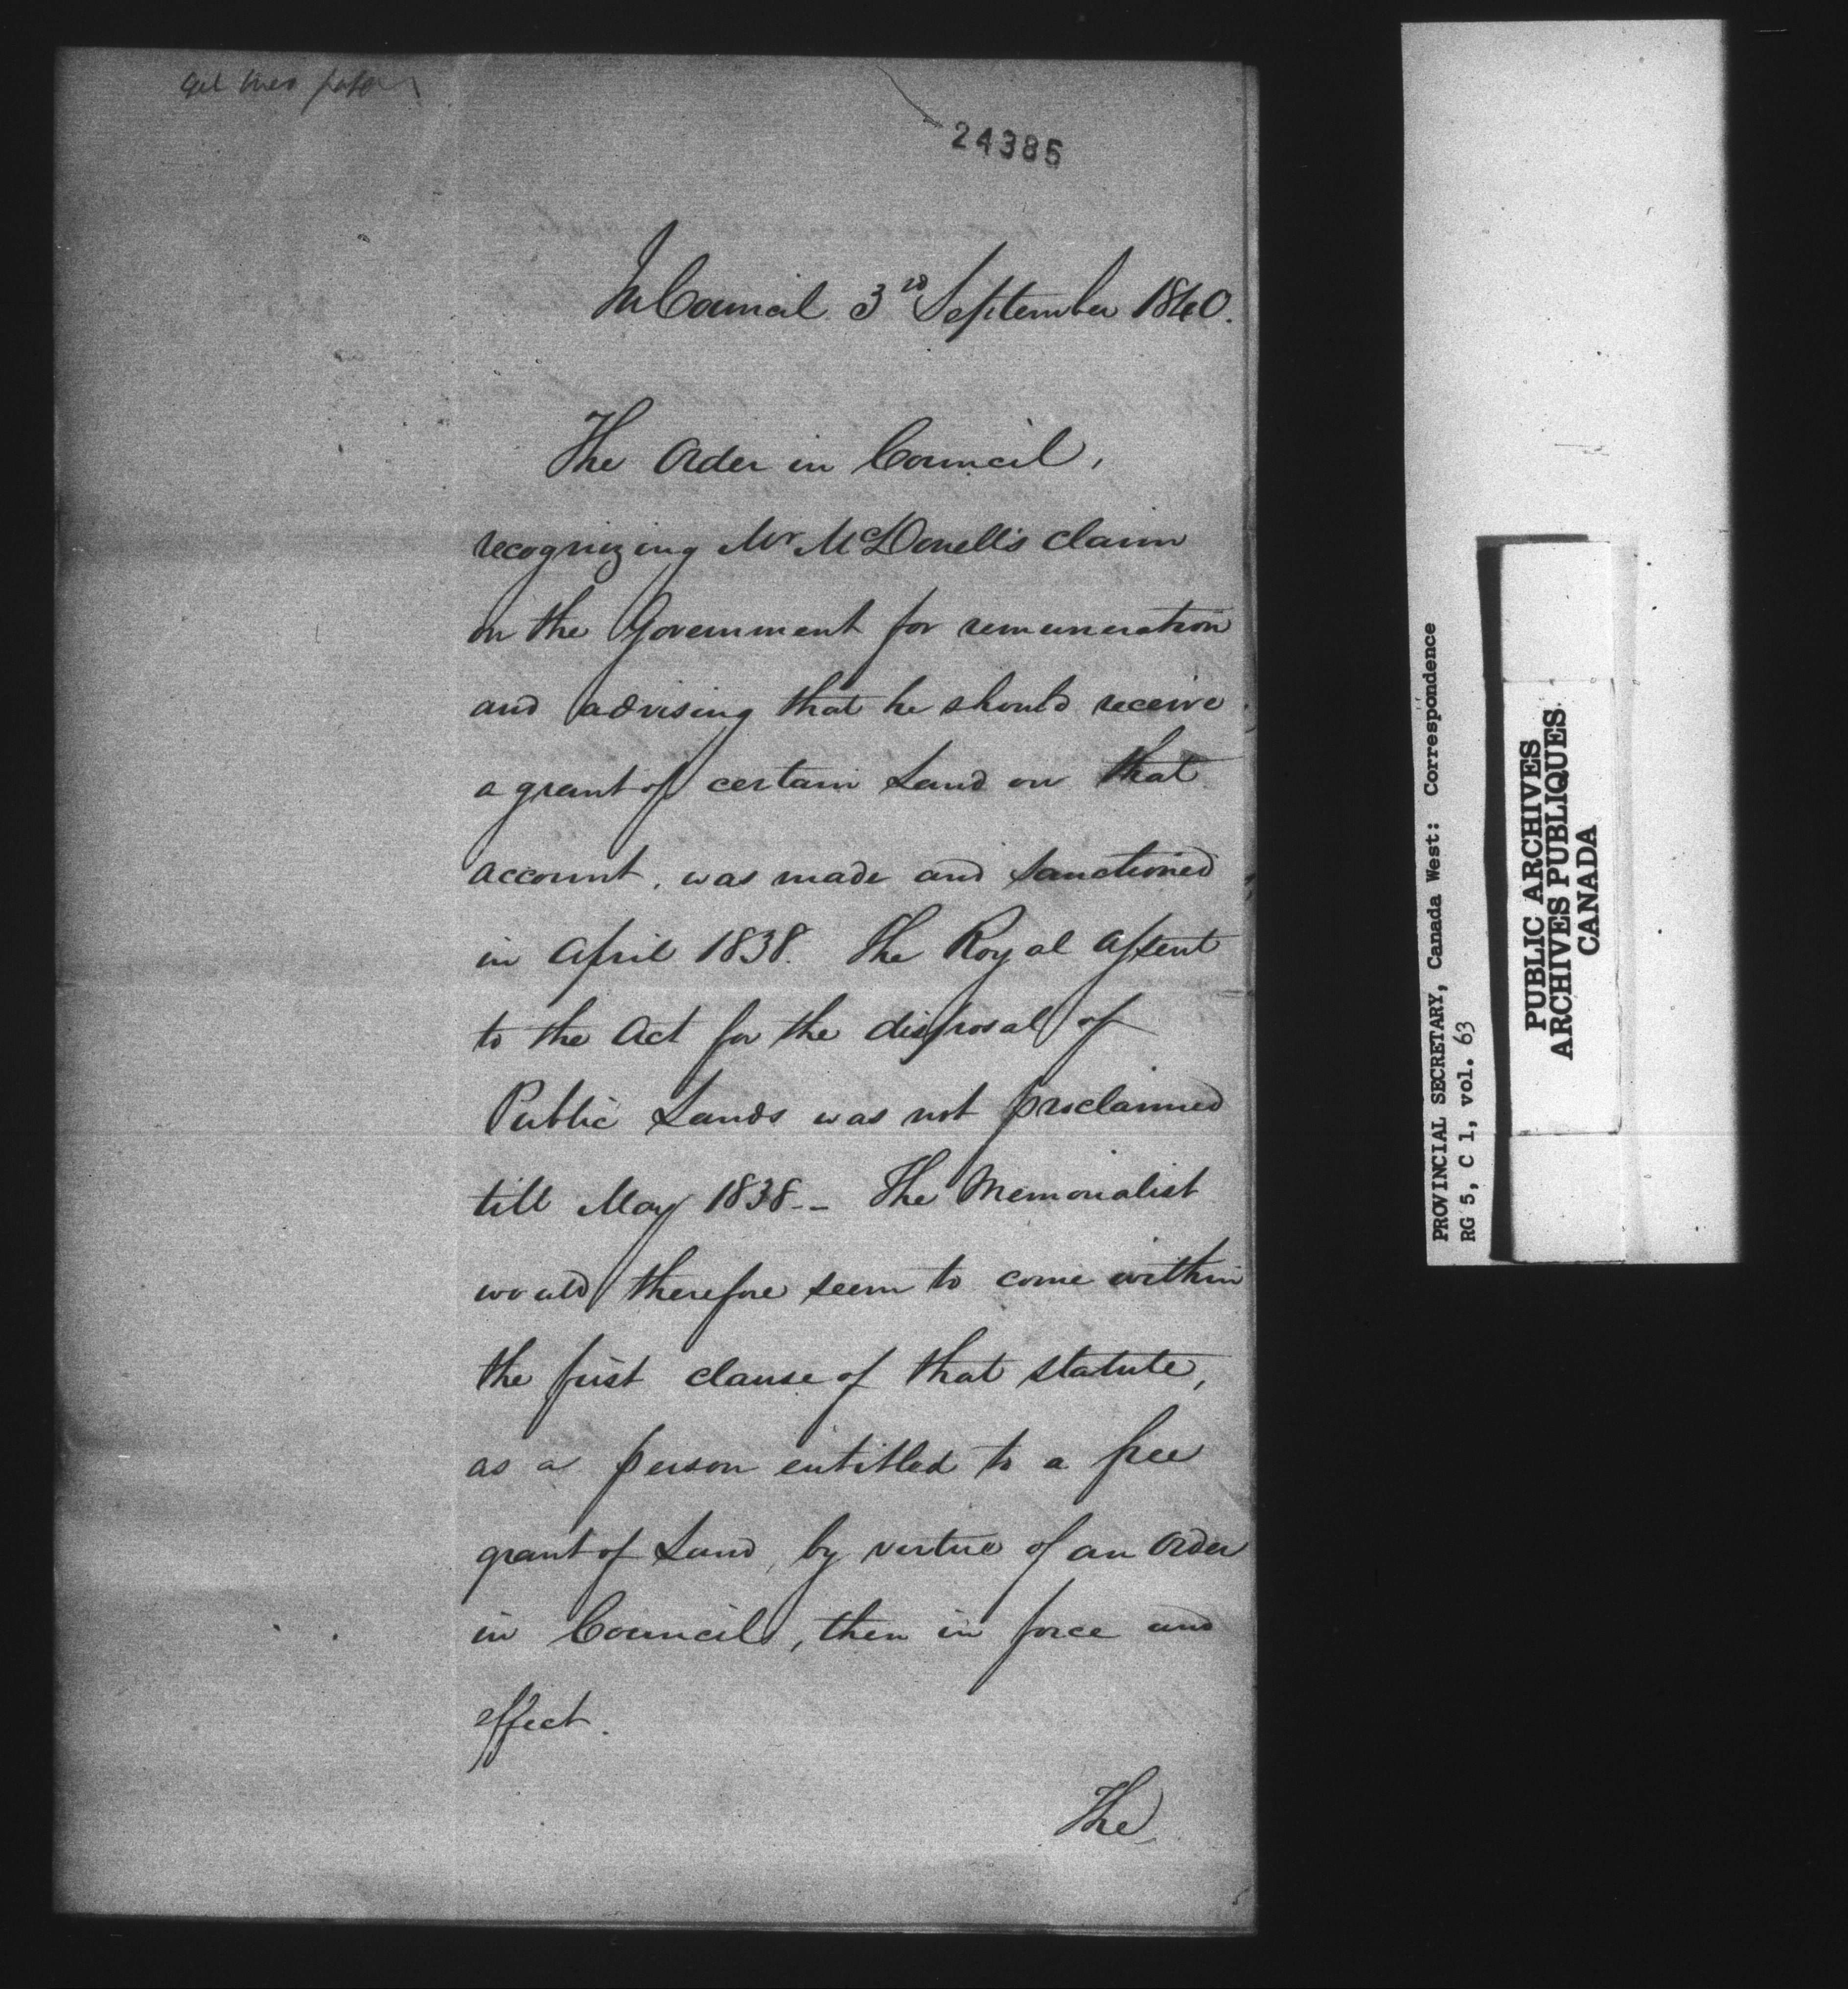 24385
In Council 3rd September 1840.
The Order in Council,
recognizing Mr McDonell's claim
on the Government for remuneration
and advising that he should receive
a grant of certain Land on that
account, was made and sanctioned
in April 1838. The Royal Assent
to the Act for the disposal of
Public Lands was not proclaimed
till May 1838 -- The Memorialist
would therefore seem to come within
the first clause of that statute,
as a person entitled to a free
grant of Land, by virtue of an Order
in Council, then in force and
effect.
The
PROVINCIAL SECRETARY, Canada West: Correspondence
RG 5, C 1, vol. 63
PUBLIC ARCHIVES
ARCHIVES PUBLIQUES
CANADA